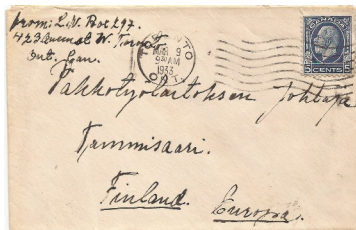 from: L.N. Box 297.
423 Queen st W. Toronto
Ont. Can.
TORONTO
9
9 30 AM
1933
ONT.
CANADA
5 CENTS 5
Pakkotyölaitoksen Johtaja
Tammisaari.
Finland.
Europa.